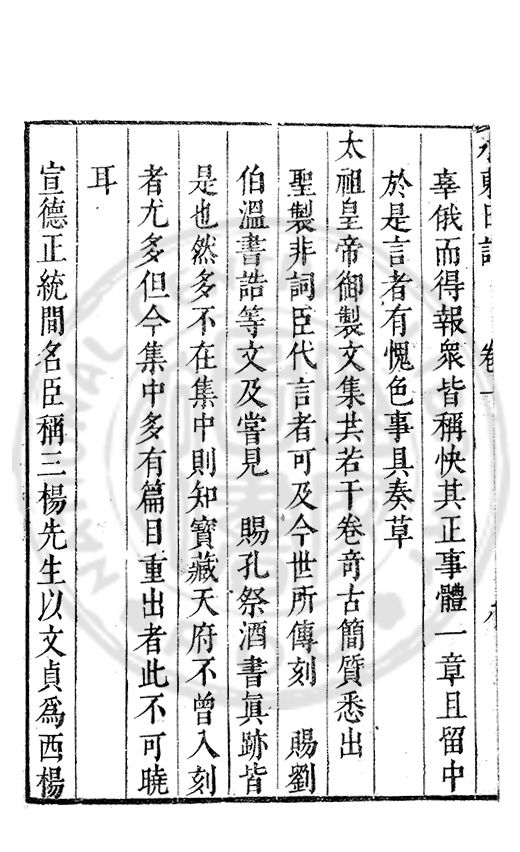 水東日記 卷一
辜俄而得報衆皆稱快其正事體一章且留中
於是言者有愧色事具奏草
太祖皇帝御製文集共若干卷奇古簡質悉出
聖製非詞臣代言者可及今世所傳刻 賜劉
伯溫書誥等文及嘗見 賜孔祭酒書眞跡皆
是也然多不在集中則知寶藏天府不曾入刻
者尤多但今集中多有篇目重出者此不可曉
耳
宣德正統間名臣稱三楊先生以文貞爲西楊